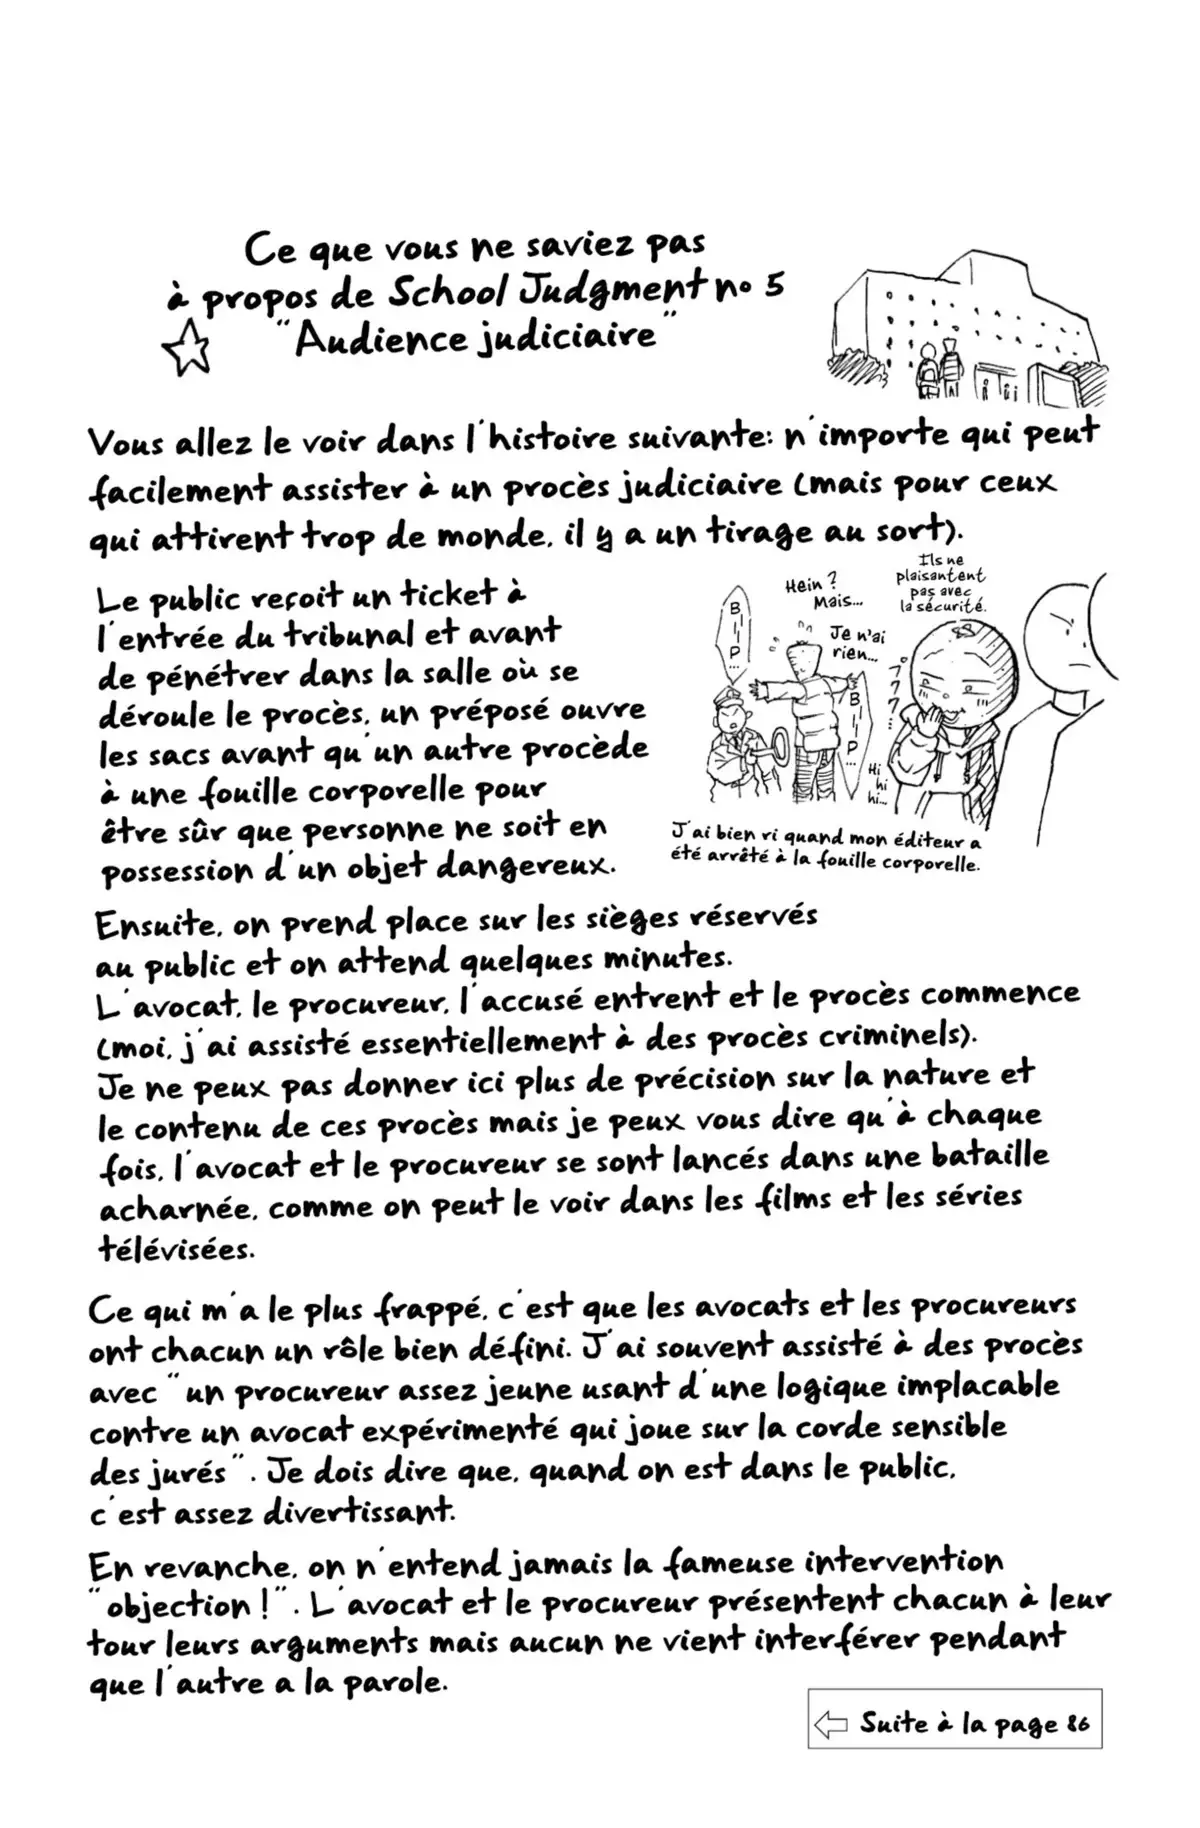 Ce que vous ne saviez pas
à propos de School Judgment no 5
"Audience judiciaire"
Vous allez le voir dans l'histoire suivante: n'importe qui peut
facilement assister à un procès judiciaire (mais pour ceux
qui attirent trop de monde, il y a un tirage au sort).
Le public reçoit un ticket à
l'entrée du tribunal et avant
de pénétrer dans la salle où se
déroule le procès, un préposé ouvre
les sacs avant qu'un autre procède
à une fouille corporelle pour
être sûr que personne ne soit en
possession d'un objet dangereux.
BIIP...
Hein ?
Mais...
Je n'ai
rien...
BIIP...
Ils ne
plaisantent
pas avec
la sécurité.
Hi
hi
hi...
J'ai bien ri quand mon éditeur a
été arrêté à la fouille corporelle.
Ensuite, on prend place sur les sièges réservés
au public et on attend quelques minutes.
L'avocat, le procureur, l'accusé entrent et le procès commence
(moi, j'ai assisté essentiellement à des procès criminels).
Je ne peux pas donner ici plus de précision sur la nature et
le contenu de ces procès mais je peux vous dire qu'à chaque
fois, l'avocat et le procureur se sont lancés dans une bataille
acharnée, comme on peut le voir dans les films et les séries
télévisées.
Ce qui m'a le plus frappé, c'est que les avocats et les procureurs
ont chacun un rôle bien défini. J'ai souvent assisté à des procès
avec "un procureur assez jeune usant d'une logique implacable
contre un avocat expérimenté qui joue sur la corde sensible
des jurés". Je dois dire que, quand on est dans le public,
c'est assez divertissant.
En revanche, on n'entend jamais la fameuse intervention
"objection !". L'avocat et le procureur présentent chacun à leur
tour leurs arguments mais aucun ne vient interférer pendant
que l'autre a la parole.
Suite à la page 86